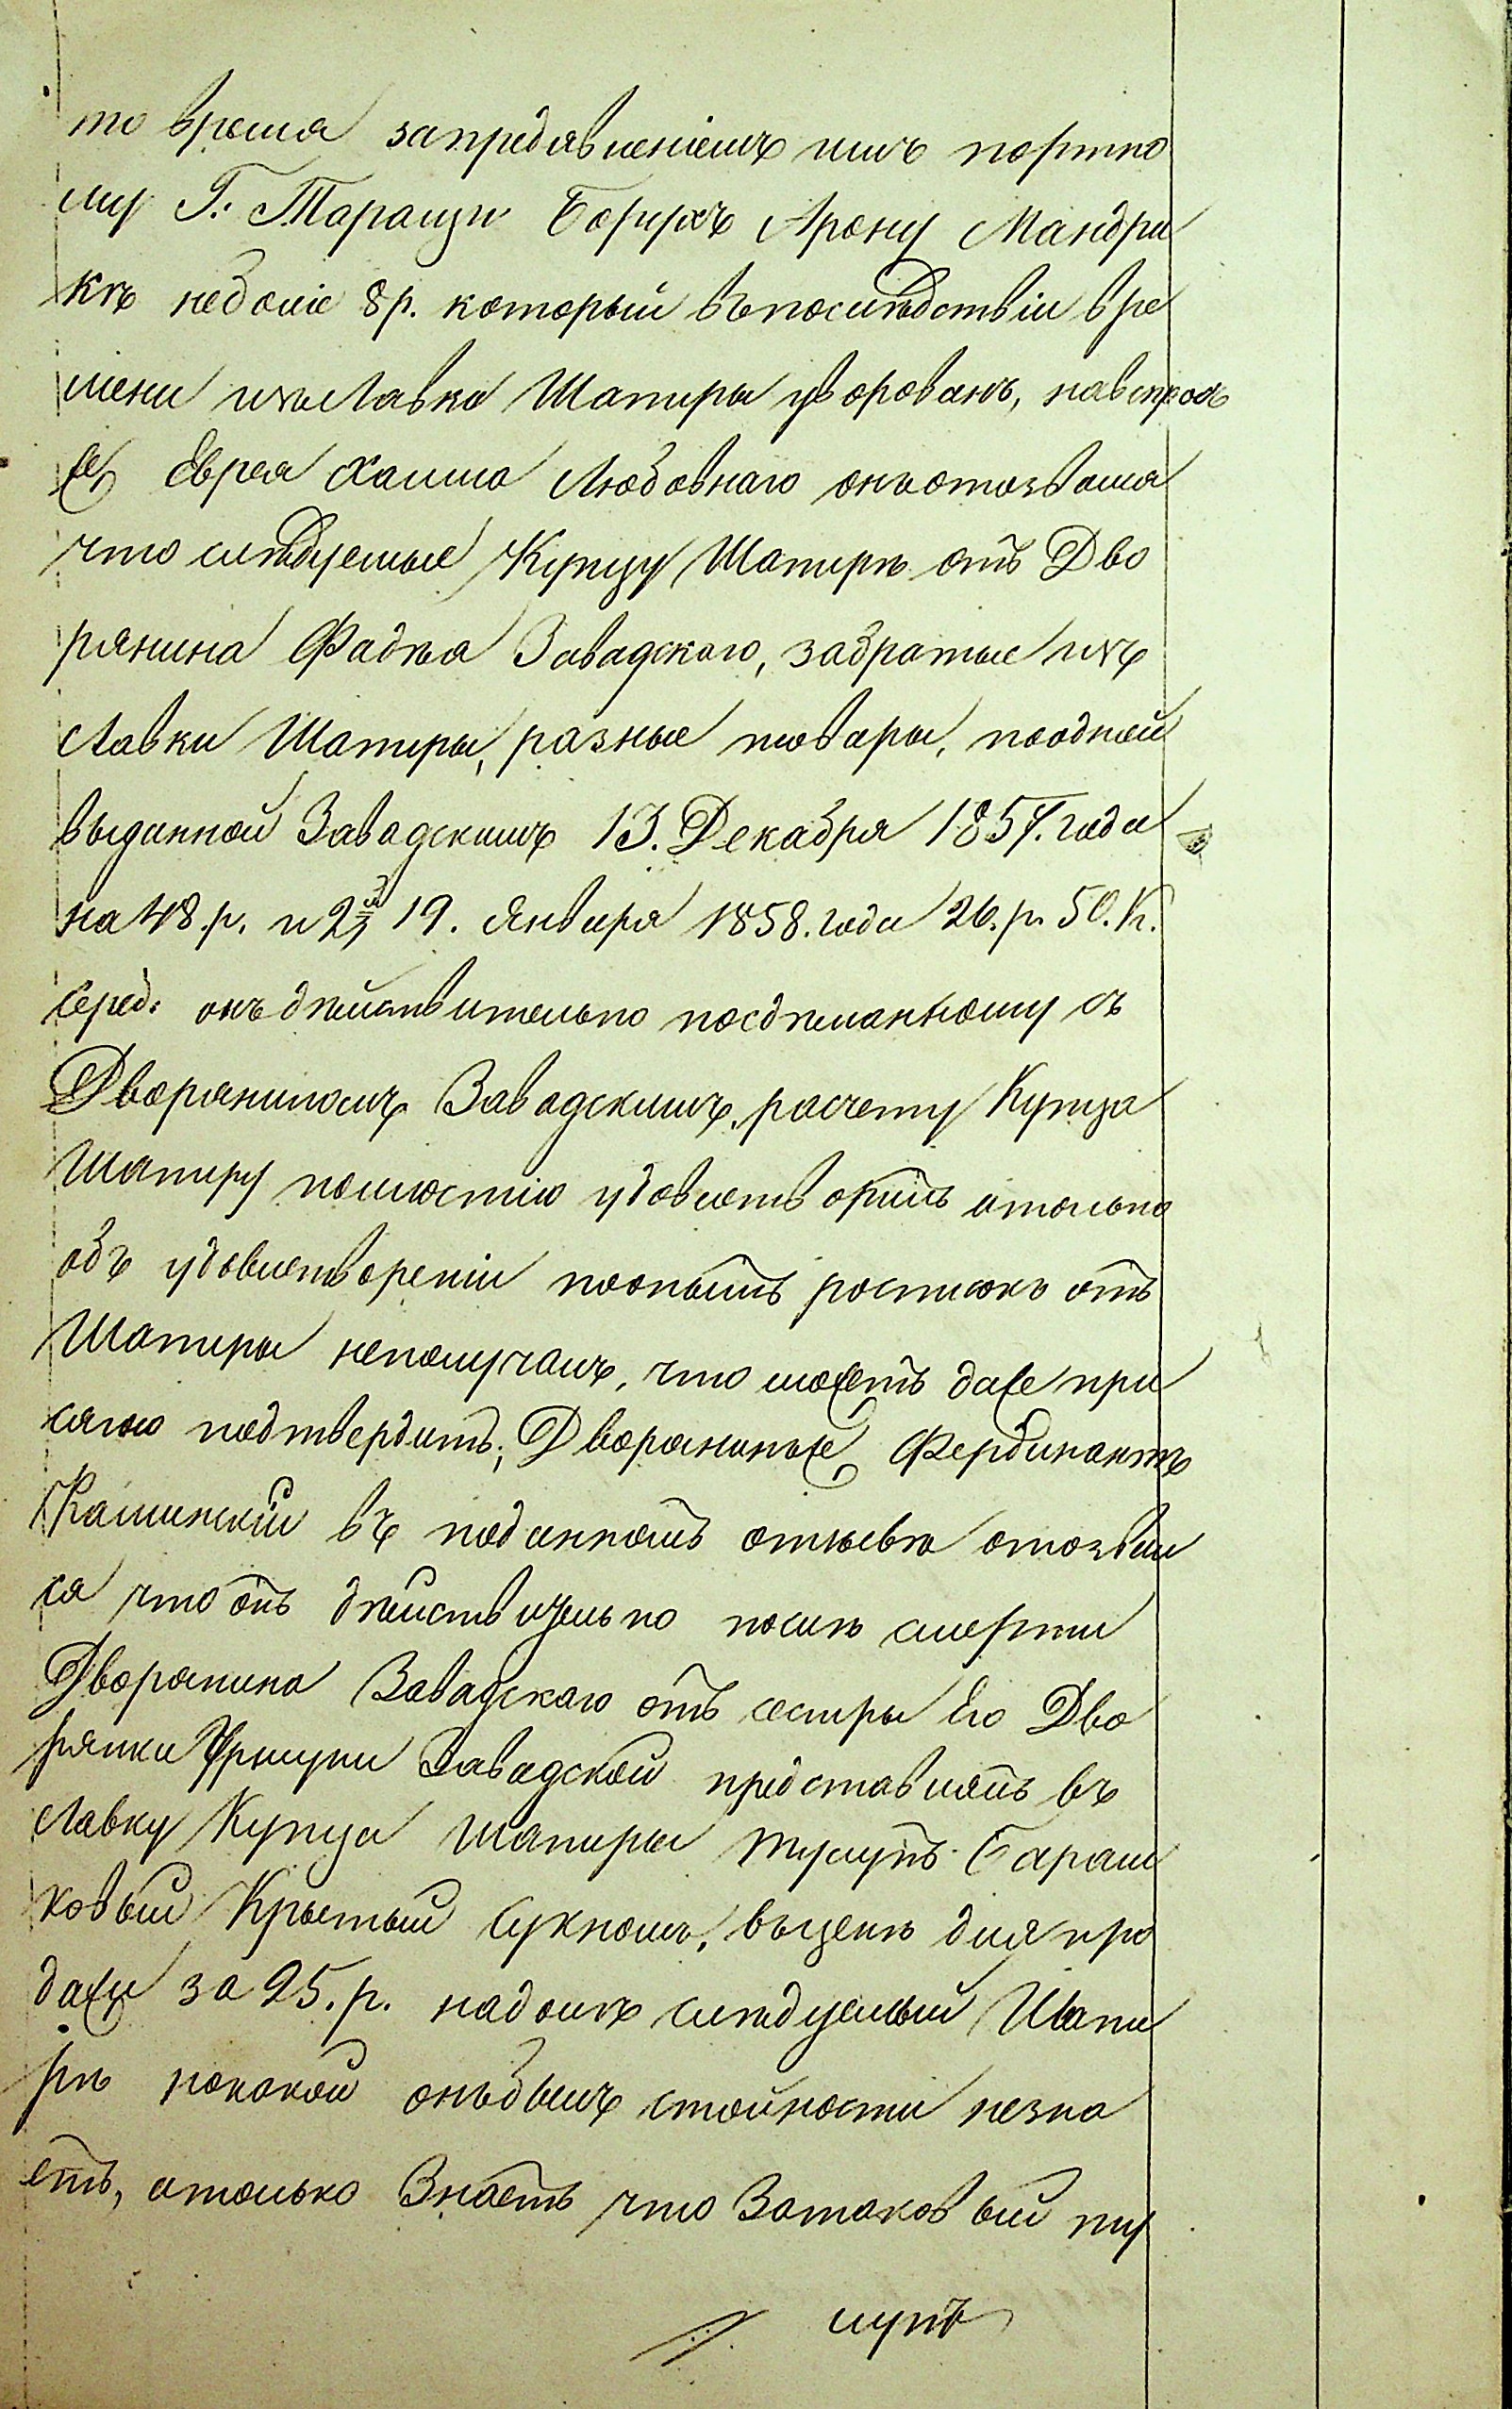 то время запредявленіемъ имъ портно
му Г. Таращи Борухъ Арону Мандри
къ неболіе 8 р. который въпослѣдствіи вре
мени изъ Лавки Шапиры уворованъ, на вопрось
же Еврея Хаима Любовнаго онъ отозвался
что слѣдуемые Купцу Шапирѣ отъ Дво
рянина Фадѣя Завадскаго, забратые изъ
Лавки Шапиры, разные товары, по одной
выданной Завадскимъ 13. Декабря 1857. года
на 48. р. и 2й 19. Января 1858. года 26. р. 50. К.
сереб: онъ дѣйствительно по сдѣланному съ
Дворяниномъ Завадскимъ, расчету Купца
Шапиру полностію удовлетворилъ и только
объ удовлетвореніи по онымъ росписокъ отъ
Шапиры неполучалъ, что можетъ даже при
сягою подтвердить; Дворянинъ же Фердинантъ
Каминскій въ поданномъ отзывѣ отозвал
ся что онъ дѣйствительно послѣ смерти
Дворянина Завадскаго отъ сестры Его Дво
рянки Завадской представлялъ въ
Лавку Купца Шапиры тулупъ Бараш
ковый Крытый сукномъ, въ цѣнѣ для про
дажи за 25. р. на долгъ слѣдуемый Шапи
рѣ но какой онъ былъ стойности незна
етъ, а только Знаетъ что Затаковый ту
лупъ